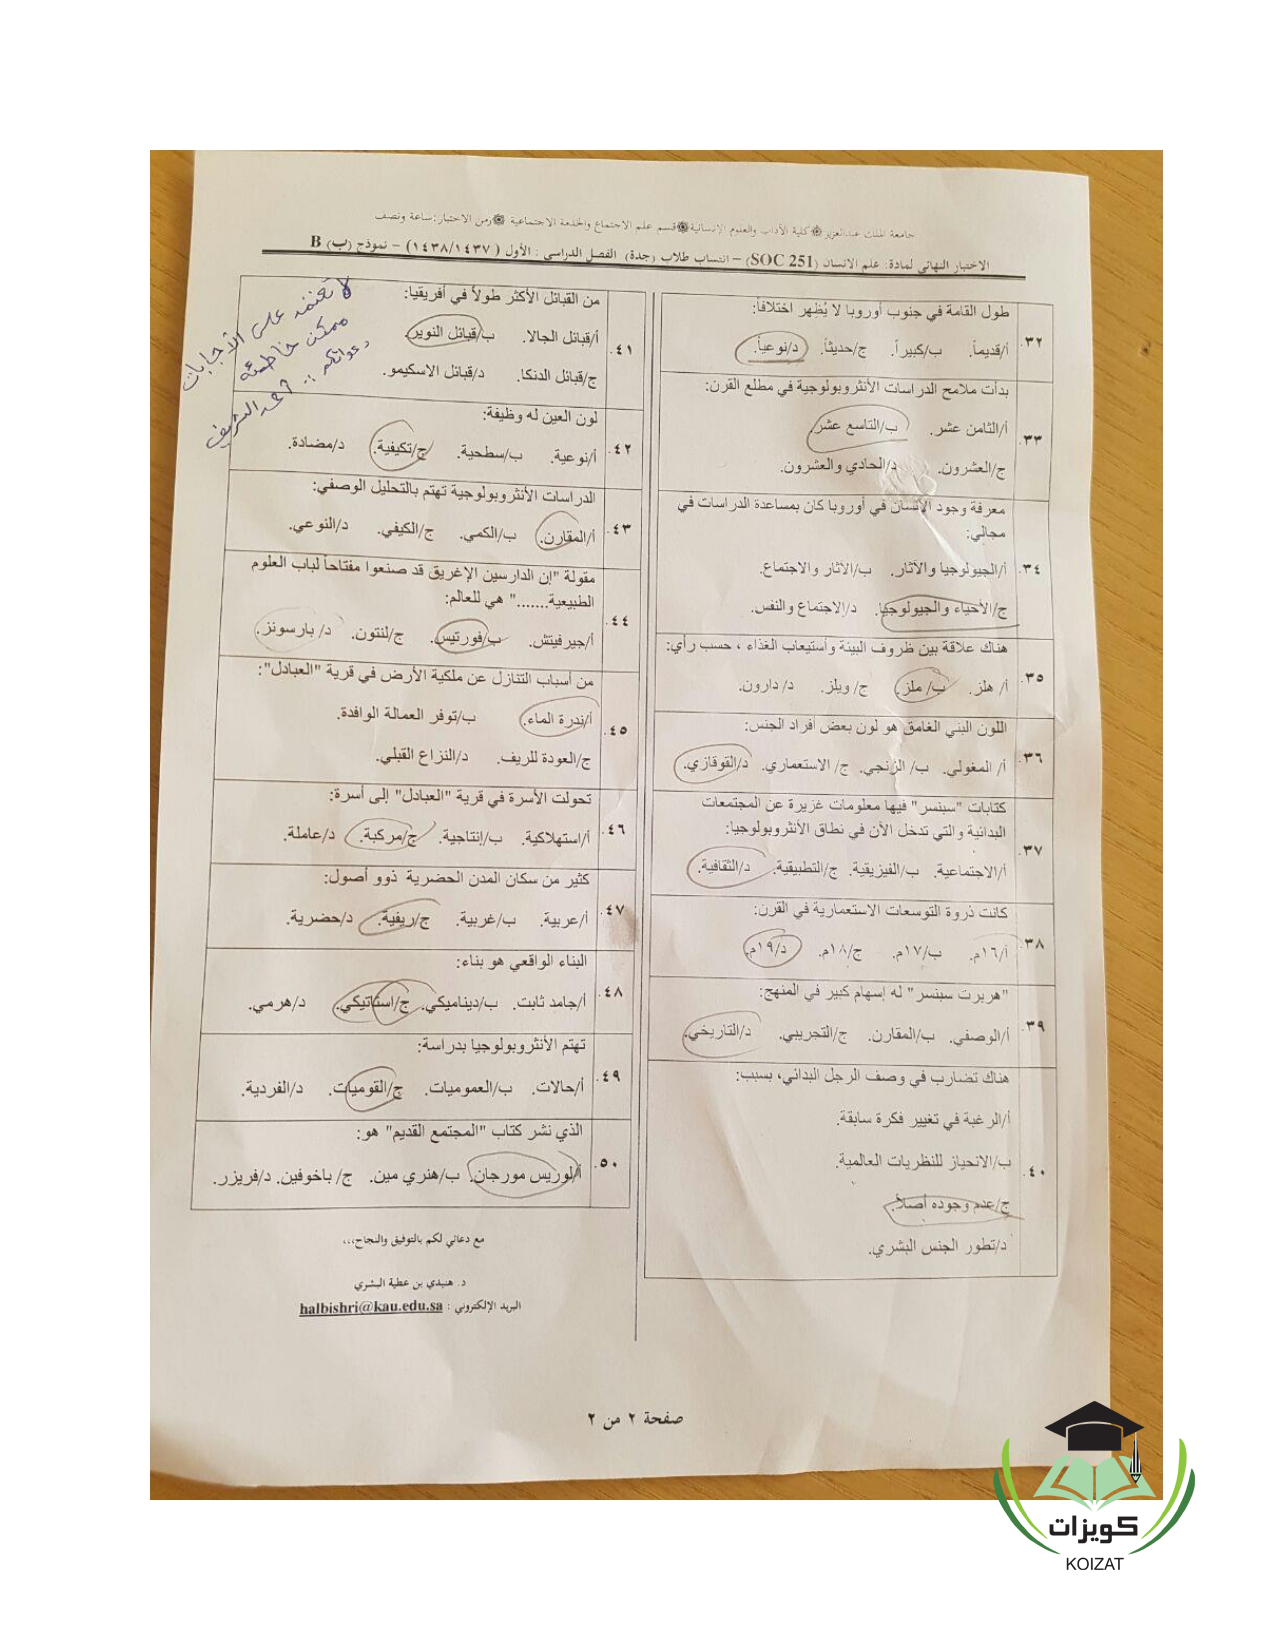 جامعة الملك عبدالعزيز۞كلية الآداب والعلوم الإنسانية۞قسم علم الاجتماع والخدمة الاجتماعية ۞زمن الاختبار: ساعة ونصف
الاختبار النهائي لمادة: علم الانسان (SOC 251) – انتساب طلاب (جدة) الفصل الدراسي : الأول ( ١٤٣٨/١٤٣٧) – نموذج (ب) B
لا تعتمد على الأجابات
ممكن خاطئه
دعواتكم
٣٢. طول القامة في جنوب أوروبا لا يُظهر اختلافاً:
أ/قديماً. ب/كبيراً. ج/حديثاً. د/نوعياً.
بدأت ملامح الدراسات الأنثروبولوجية في مطلع القرن:
٣٣. أ/الثامن عشر. ب/التاسع عشر.
ج/العشرون. د/الحادي والعشرون.
معرفة وجود الإنسان في أوروبا كان بمساعدة الدراسات في
مجالي:
٣٤. أ/الجيولوجيا والآثار. ب/الآثار والاجتماع.
ج/الأحياء والجيولوجيا. د/الاجتماع والنفس.
هناك علاقة بين ظروف البيئة وأستيعاب الغذاء ، حسب رأي:
٣٥. أ/ هلز. ب/ ملز. ج/ ويلز. د/ دارون.
اللون البني الغامق هو لون بعض أفراد الجنس:
٣٦. أ/ المغولي. ب/ الزنجي. ج/ الاستعماري. د/القوقازي.
كتابات "سبنسر" فيها معلومات غزيرة عن المجتمعات
البدائية والتي تدخل الآن في نطاق الأنثروبولوجيا:
٣٧. أ/الاجتماعية. ب/الفيزيقية. ج/التطبيقية. د/الثقافية.
كانت ذروة التوسعات الاستعمارية في القرن:
٣٨. أ/١٦م. ب/١٧م. ج/١٨م. د/١٩م.
"هربرت سبنسر" له إسهام كبير في المنهج:
٣٩. أ/الوصفي. ب/المقارن. ج/التجريبي. د/التاريخي.
هناك تضارب في وصف الرجل البدائي، بسبب:
أ/الرغبة في تغيير فكرة سابقة.
٤٠. ب/الانحياز للنظريات العالمية.
ج/عدم وجوده أصلاً.
د/تطور الجنس البشري.
من القبائل الأكثر طولاً في أفريقيا:
٤١. أ/قبائل الجالا. ب/قبائل النوير.
ج/قبائل الدنكا. د/قبائل الاسكيمو.
لون العين له وظيفة:
٤٢. أ/نوعية. ب/سطحية. ج/تكيفية. د/مضادة.
الدراسات الأنثروبولوجية تهتم بالتحليل الوصفي:
٤٣. أ/المقارن. ب/الكمي. ج/الكيفي. د/النوعي.
مقولة "إن الدارسين الإغريق قد صنعوا مفتاحاً لباب العلوم
الطبيعية......." هي للعالم:
٤٤. أ/جيرفيتش. ب/فورتيس. ج/لنتون. د/ بارسونز.
من أسباب التنازل عن ملكية الأرض في قرية "العبادل":
٤٥. أ/ندرة الماء. ب/توفر العمالة الوافدة.
ج/العودة للريف. د/النزاع القبلي.
تحولت الأسرة في قرية "العبادل" إلى أسرة:
٤٦. أ/استهلاكية. ب/إنتاجية. ج/مركبة. د/عاملة.
كثير من سكان المدن الحضرية ذوو أصول:
٤٧. أ/عربية. ب/غربية. ج/ريفية. د/حضرية.
البناء الواقعي هو بناء:
٤٨. أ/جامد ثابت. ب/ديناميكي. ج/استاتيكي. د/هرمي.
تهتم الأنثروبولوجيا بدراسة:
٤٩. أ/حالات. ب/العموميات. ج/القوميات. د/الفردية.
الذي نشر كتاب "المجتمع القديم" هو:
٥٠. أ/لوريس مورجان. ب/هنري مين. ج/ باخوفين. د/فريزر.
مع دعائي لكم بالتوفيق والنجاح،،،
د. هنيدي بن عطية البشري
البريد الإلكتروني : halbishri@kau.edu.sa
صفحة ٢ من ٢
كويزات
KOIZAT